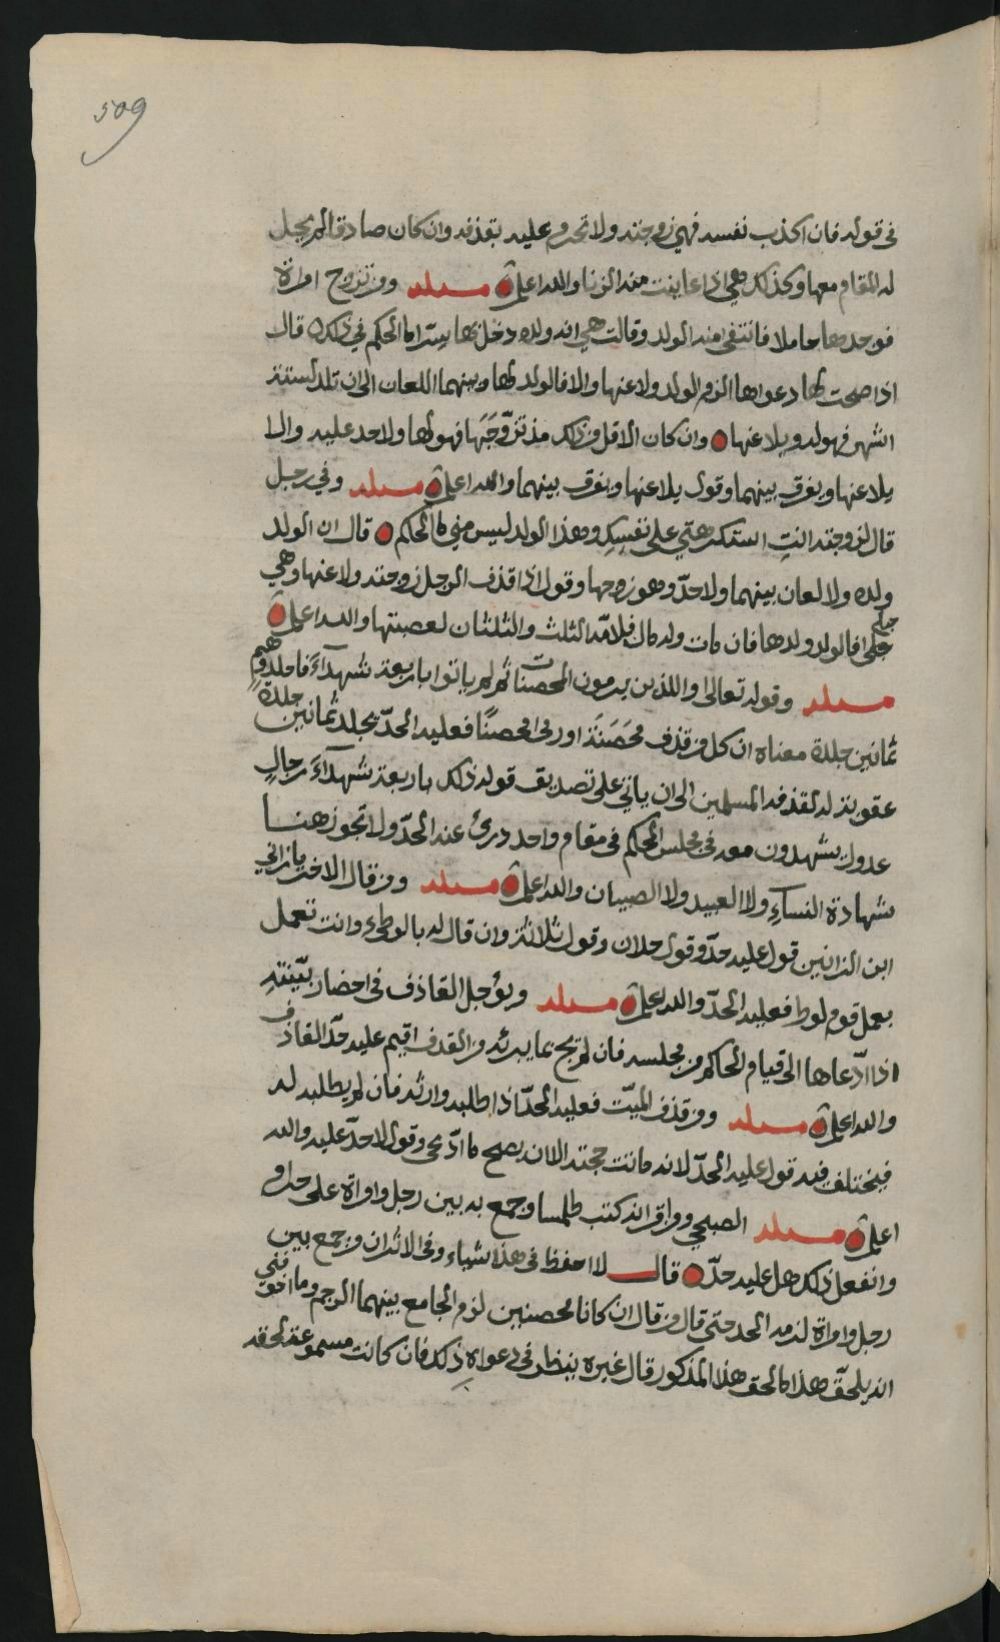 509
في قوله فان اكذب نفسه فهي زوجته ولا تحرم عليه بقذفه وان كان صادقا لم يحل
له المقام معها وكذلك هي اذا عاينت منه الزنا والله اعلم مسئلة ومن تزوج امراة
فوجدها حاملا فانتفى منه الولد وقالت هي انه ولده دخل بها سرا ما الحكم في ذلك قال
اذا صحت لها دعواها الزم الولد ولاعنها والا فالولد لها وبينهما اللعان الى ان تلد لستة
اشهر فهو لده ويلاعنها وان كان لاقل من ذلك مذ تزوّجَها فهو لها ولا حد عليه والا
يلاعنها ويفرق بينهما وقول يلاعنها ويفرق بينهما والله اعلم مسئلة وفي رجل
قال لزوجته انتِ استكرهتي على نفسِكِ وهذا الولد ليس مني ما الحكم قال ان الولد
ولده ولا لعان بينهما ولا حدّ وهو زوجها وقول اذا قذف الرجل زوجته ولاعنها وهي
حبلى فالولد ولدها فان مات ولده كان فلامّه الثلث والثلثان لعصبتها والله اعلم
مسئلة وقوله تعالى واللذين يرمون المحصنات ثم لم ياتوا باربعة شهدآءَ فاجلدوهم
ثمانين جلدة معناه ان كل من قذف محَصَنَة او رمى محصنًا فعليه الحدّ يجلد ثمانين جلدة
عقوبة له لقذفه المسلمين الى ان ياتي على تصديق قوله ذلك باربعة شهدآءَ رجالٍ
عدول يشهدون معه في مجلس الحكم في مقام واحد درئ عنه الحدّ ولا تجوز هنا
شهادة النساءِ ولا العبيد ولا الصبيان والله اعلم مسئلة ومن قال لاخر يا زاني
ابن الزانين قول عليه حدّ وقول حدان وقول ثلاثة وان قال له يا لوطي وانت تعمل
بعمل قوم لوط فعليه الحدّ والله اعلم مسئلة ويؤجل القاذف في احضار بيّنتهِ
اذا ادّعاها الى قيام الحاكم من مجلسه فان لم يجئ بما يبرئه من القذف اقيم عليه حدّ القاذف
والله اعلم مسئلة ومن قذف الميّت فعليه الحدّ اذا طلبه وارثه فان لم يطلبه له
فيختلف فيه قول عليه الحدّ لانه ماتت حجته الا ان يصح ما ادّعى وقول لا حدّ عليه والله
اعلم مسئلة الصبحي ومن اقر انه كتب طلمسا وجمع به بين رجل وامراة على حرام
وانفعل ذلك هل عليه حدّ قال لا احفظ في هذا شياء وفي الاثر ان من جمع بين
رجل وامراة لزمه الحد حتى قال من قال ان كانا محصنين لزم الجامع بينهما الرجم وما اخوفني
انه يلحقّ هذا ما لحق هذا المذكور قال غيره ينظر في دعواه ذلك فان كانت مسموعة لحقه